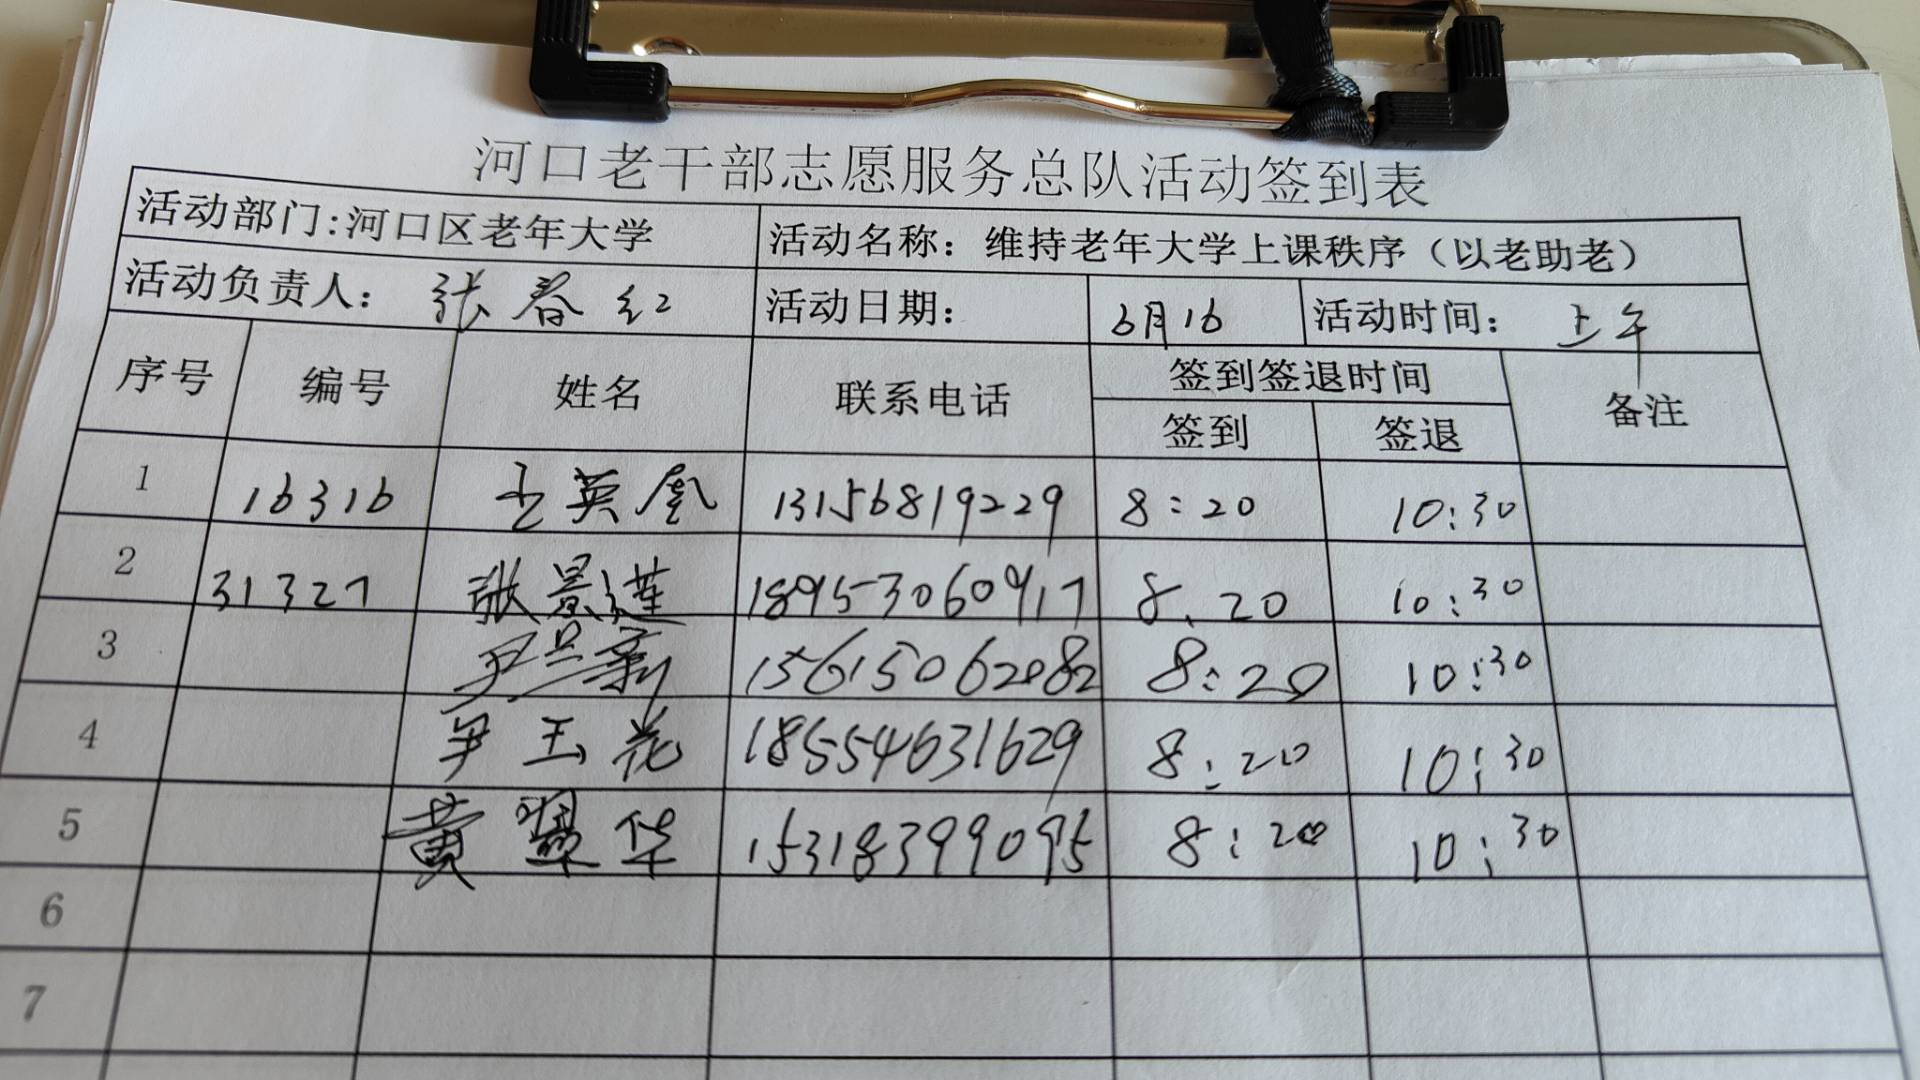 河口老干部志愿服务总队活动签到表
活动部门:河口区老年大学 活动名称：维持老年大学上课秩序（以老助老）
活动负责人： 张春红 活动日期： 6月16 活动时间： 上午
序号 编号 姓名 联系电话 签到签退时间 备注
签到 签退
1 16316 王英凰 13156819229 8:20 10:30
2 31327 张景莲 18953060917 8.20 10:30
3 尹兰新 15615062082 8:20 10:30
4 尹玉花 18554631629 8:20 10:30
5 黄 华 15318399095 8:20 10:30
6
7